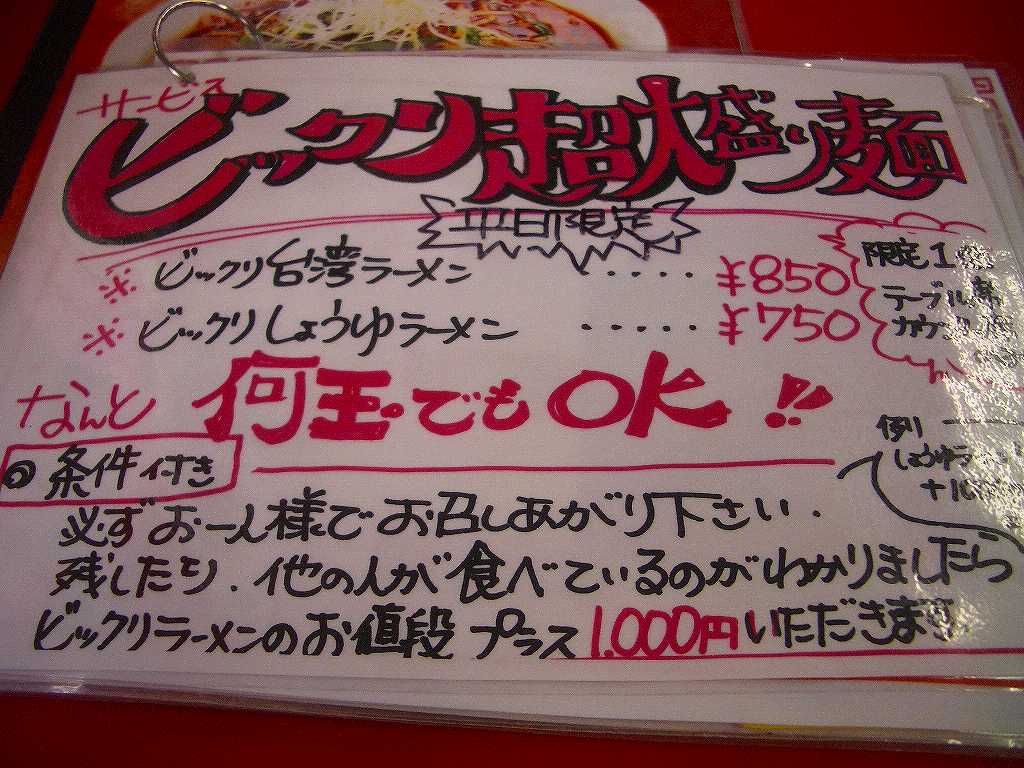 サービス
ビックリ超大盛り麺
平日限定
※ ビックリ台湾ラーメン ..... ¥850
※ ビックリしょうゆラーメン ...... ¥750
限定1
テーブル席
カウンター
なんと 何玉でもOK!!
例)
しょうゆラ
◎条件付き
必ずお一人様でお召しあがり下さい.
残したり.他の人が食べているのがわかりましたら
ビックリラーメンのお値段 プラス 1.000円いただきます